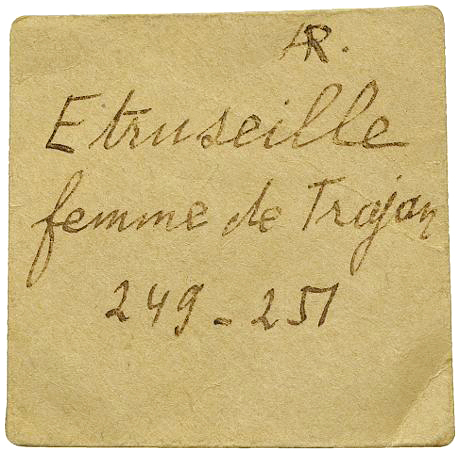 AR.
Etruseille
femme de Trajan
249 - 251